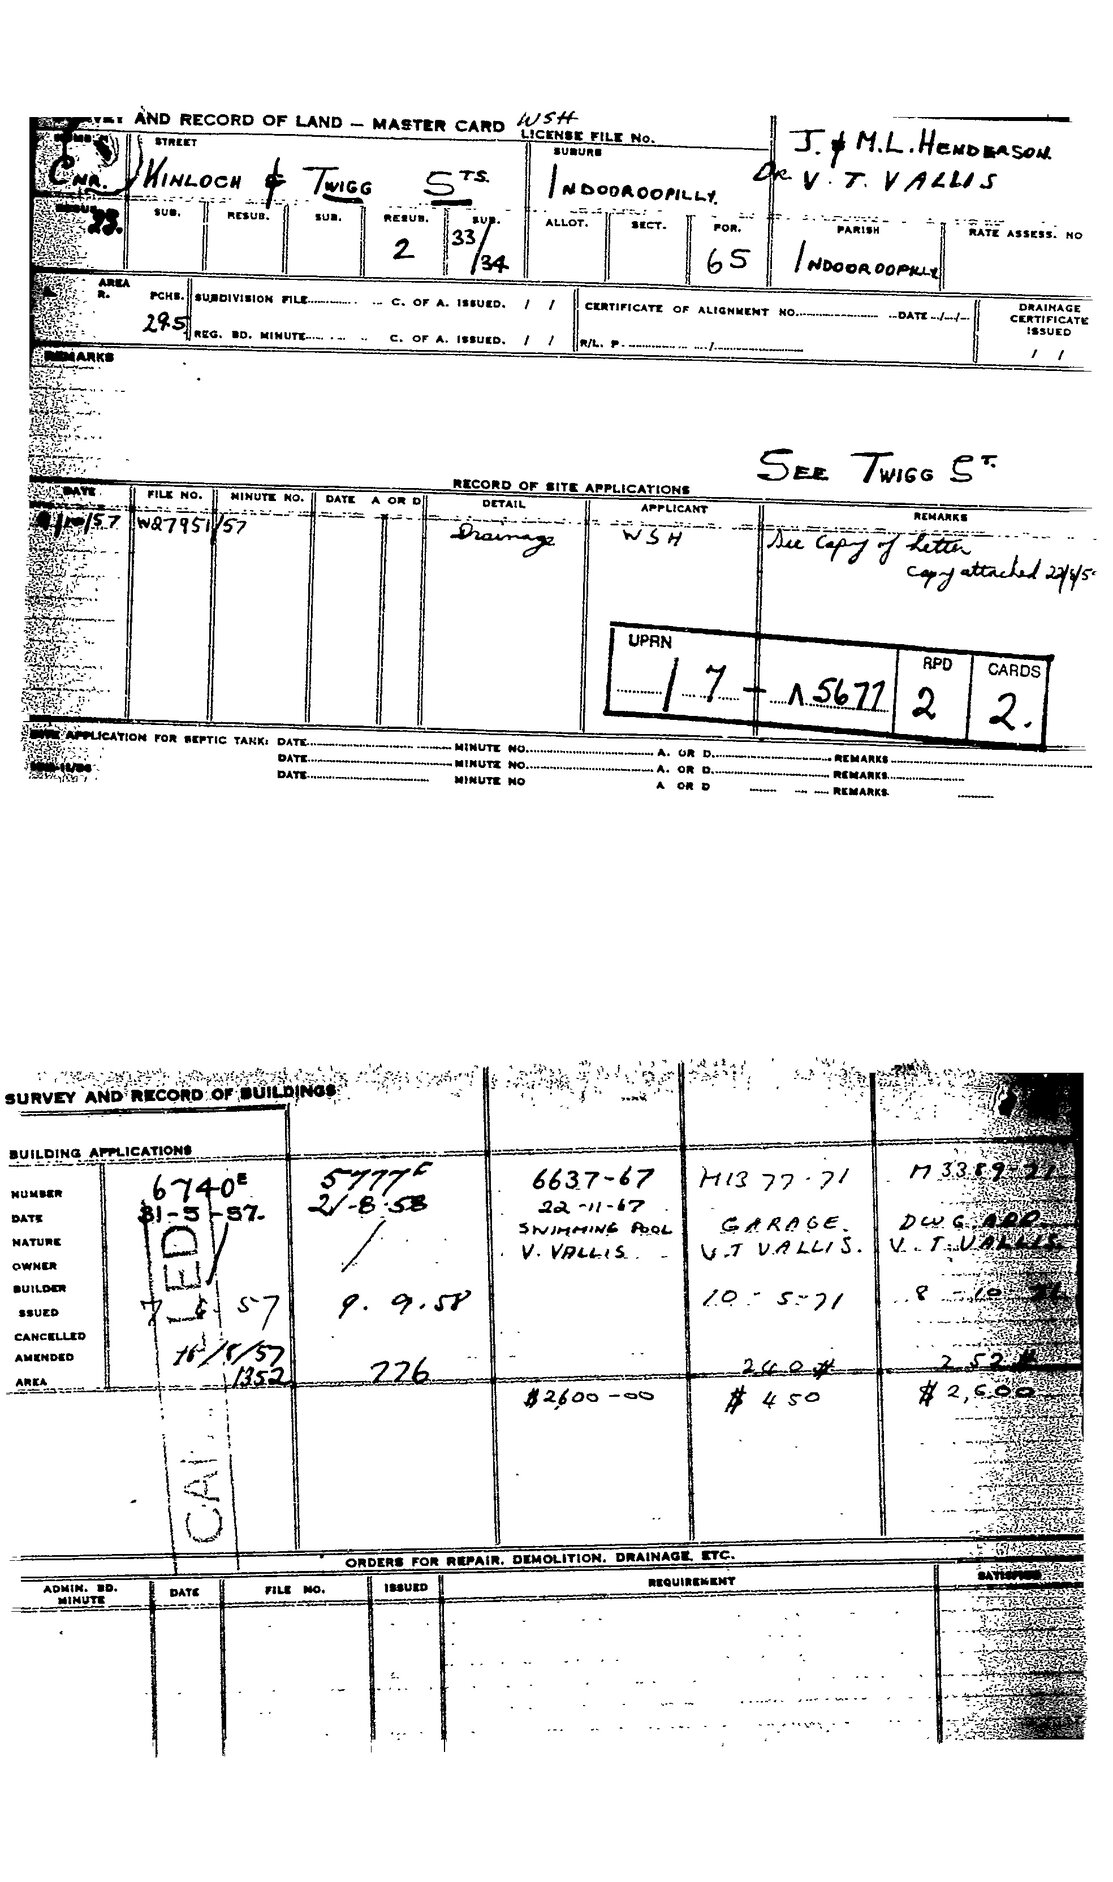 AND RECORD OF LAND — MASTER CARD WSH
LICENSE FILE No.
STREET
SUBURB
J. & M.L. HENDERSON.
CNR. KINLOCH & TWIGG STS.
INDOOROOPILLY.
DR. V. T. VALLIS
SUB. RESUB. SUB. RESUB. SUB. ALLOT. SECT. POR. PARISH RATE ASSESS. NO
23. 2 33/34 65 INDOOROOPILLY
AREA
R. PCHS. SUBDIVISION FILE C. OF A. ISSUED. / / CERTIFICATE OF ALIGNMENT NO. DATE / / DRAINAGE CERTIFICATE ISSUED
29.5 REG. BD. MINUTE C. OF A. ISSUED. / / R/L. P. / / /
REMARKS
SEE TWIGG ST.
RECORD OF SITE APPLICATIONS
DATE FILE NO. MINUTE NO. DATE A OR D DETAIL APPLICANT REMARKS
/57 W27951/57 Drainage WSH See Copy of Letter
Copy attached
UPRN RPD CARDS
17 - 15677 2 2.
APPLICATION FOR SEPTIC TANK: DATE MINUTE NO. A. OR D. REMARKS
DATE MINUTE NO. A. OR D. REMARKS
DATE MINUTE NO A OR D REMARKS
SURVEY AND RECORD OF BUILDINGS
BUILDING APPLICATIONS
NUMBER 6740E 5777F 6637-67 M1377-71 M3389-71
DATE 31-5-57. 21-8-58 22-11-67
NATURE SWIMMING POOL GARAGE. DWG ADD.
OWNER V. VALLIS V.T VALLIS. V.T VALLIS.
BUILDER
ISSUED 7 6 57 9.9.58 10-5-71 8-10-71
CANCELLED
AMENDED /8/57
AREA 1352 776 240 252
$2600-00 $450 $2,600
ORDERS FOR REPAIR, DEMOLITION, DRAINAGE, ETC.
ADMIN. BD. MINUTE DATE FILE NO. ISSUED REQUIREMENT